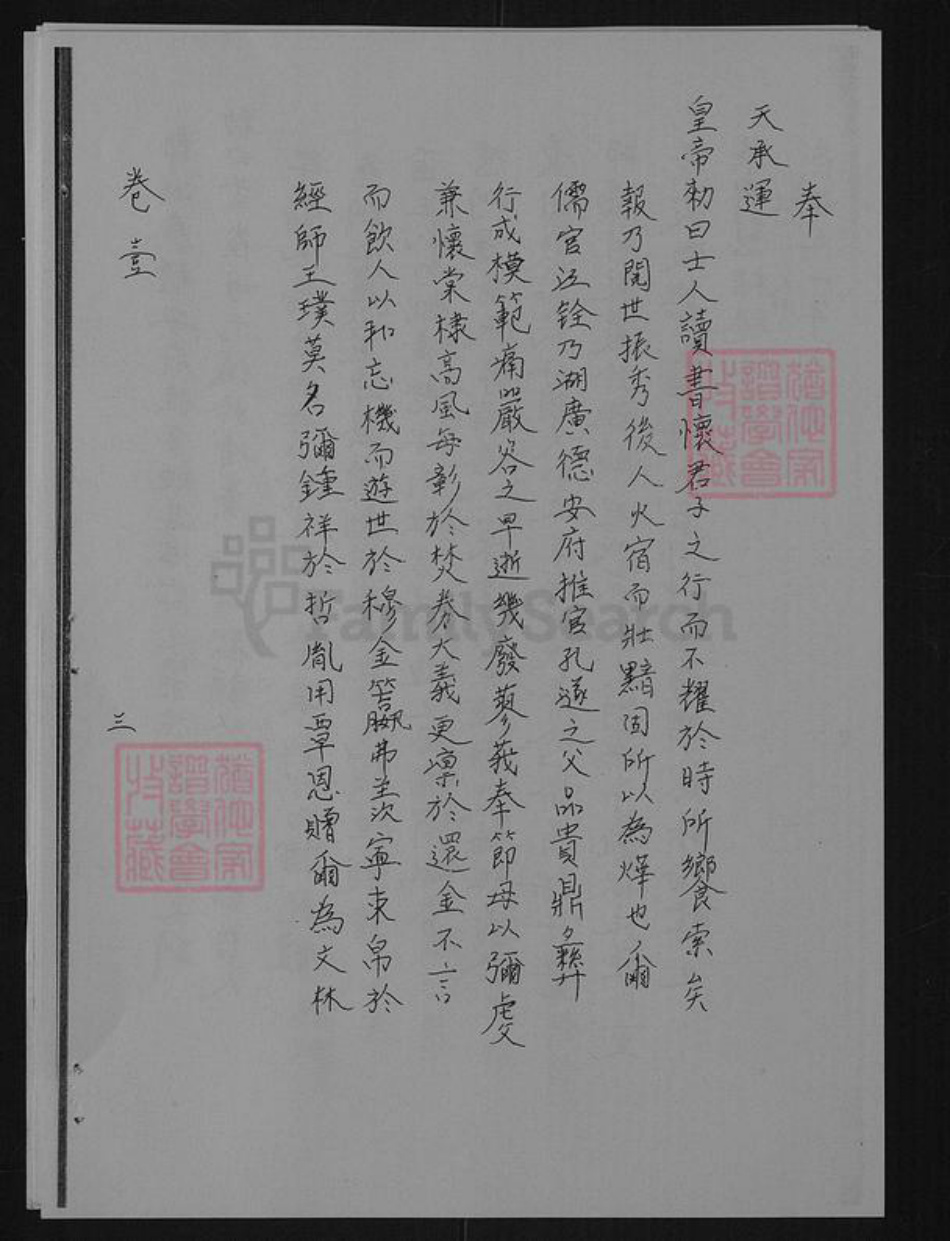 奉
天承運
皇帝勅曰士人讀書懷君子之行而不耀於時所饗索矣
報乃閱世振秀後人火宿而壯黯固所以為燁也爾
儒官江銓乃湖廣德安府推官孔遜之父品貴鼎彝
行成模範痛嚴容之早逝幾廢蓼莪奉節母以彌虔
兼懷棠棣高風每彰於焚券大義更凜於還金不言
而飲人以和忘機而遊世於穆金籯弗羨次寧束帛於
經師玉璞莫名彌鍾祥於哲胤用覃恩贈爾為文林
卷壹
三
FamilySearch